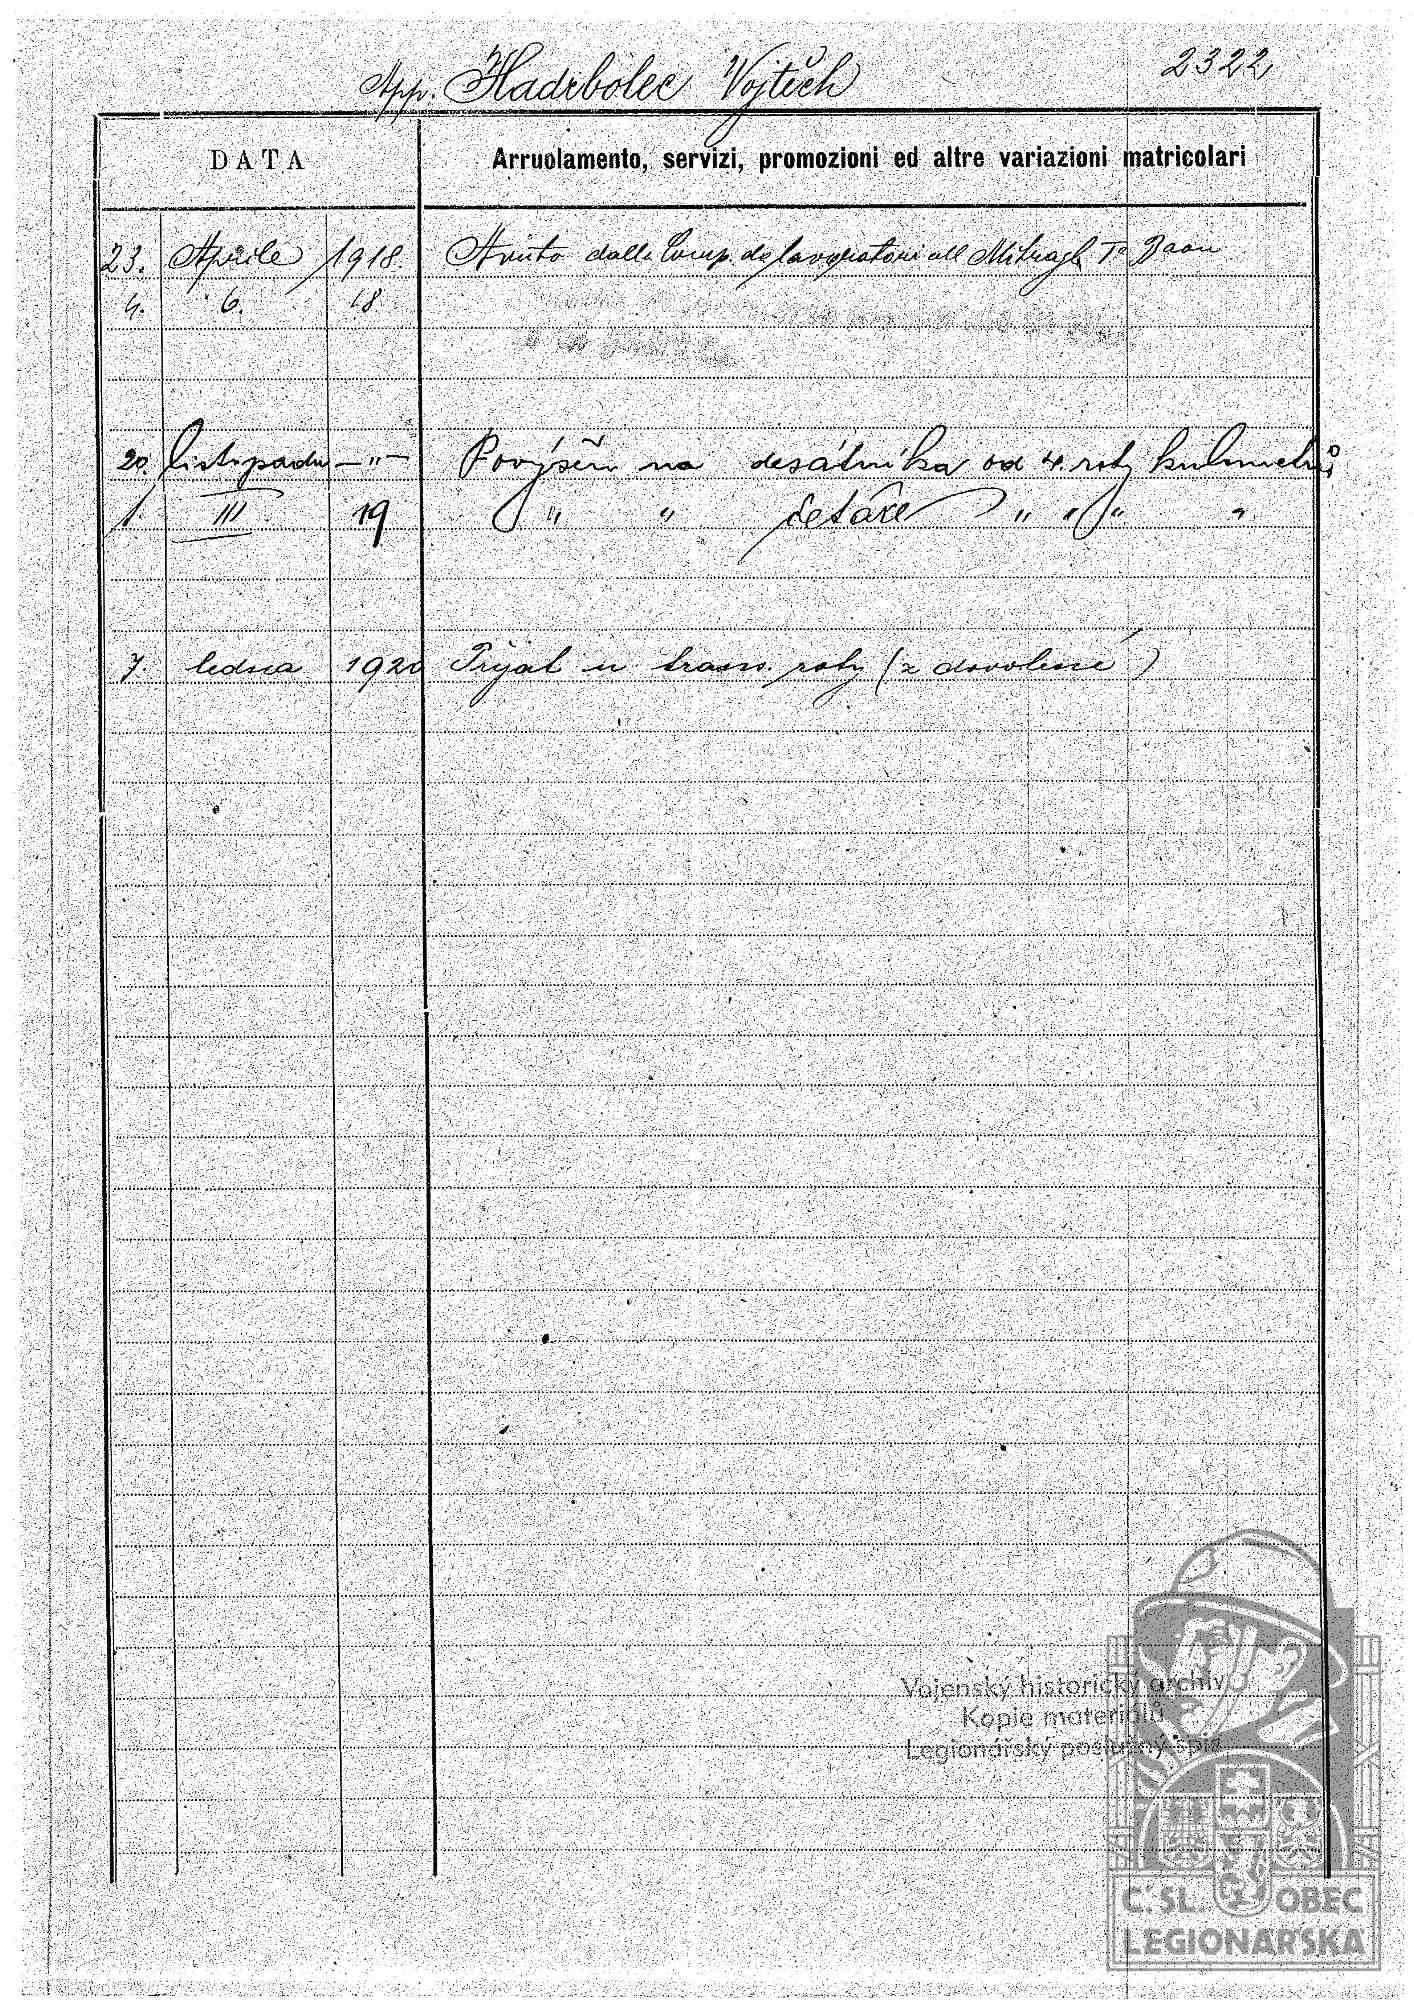 App. Hadrbolec Vojtěch 2322
DATA Arruolamento, servizi, promozioni ed altre variazioni matricolari
23. Aprile 1918. dalla Comp. lavoratori all Mitragl. Baon
4. 6. 18
20. listopadu —"— Povýšen na desátníka od 4. roty kulometů
1. III 19 " " četaře " " " "
7. ledna 1920 Přijat u roty (z dovolené)
Vojenský historický archiv
Kopie materiálu
Legionářský poslužný spis
Č.SL. OBEC
LEGIONÁŘSKÁ